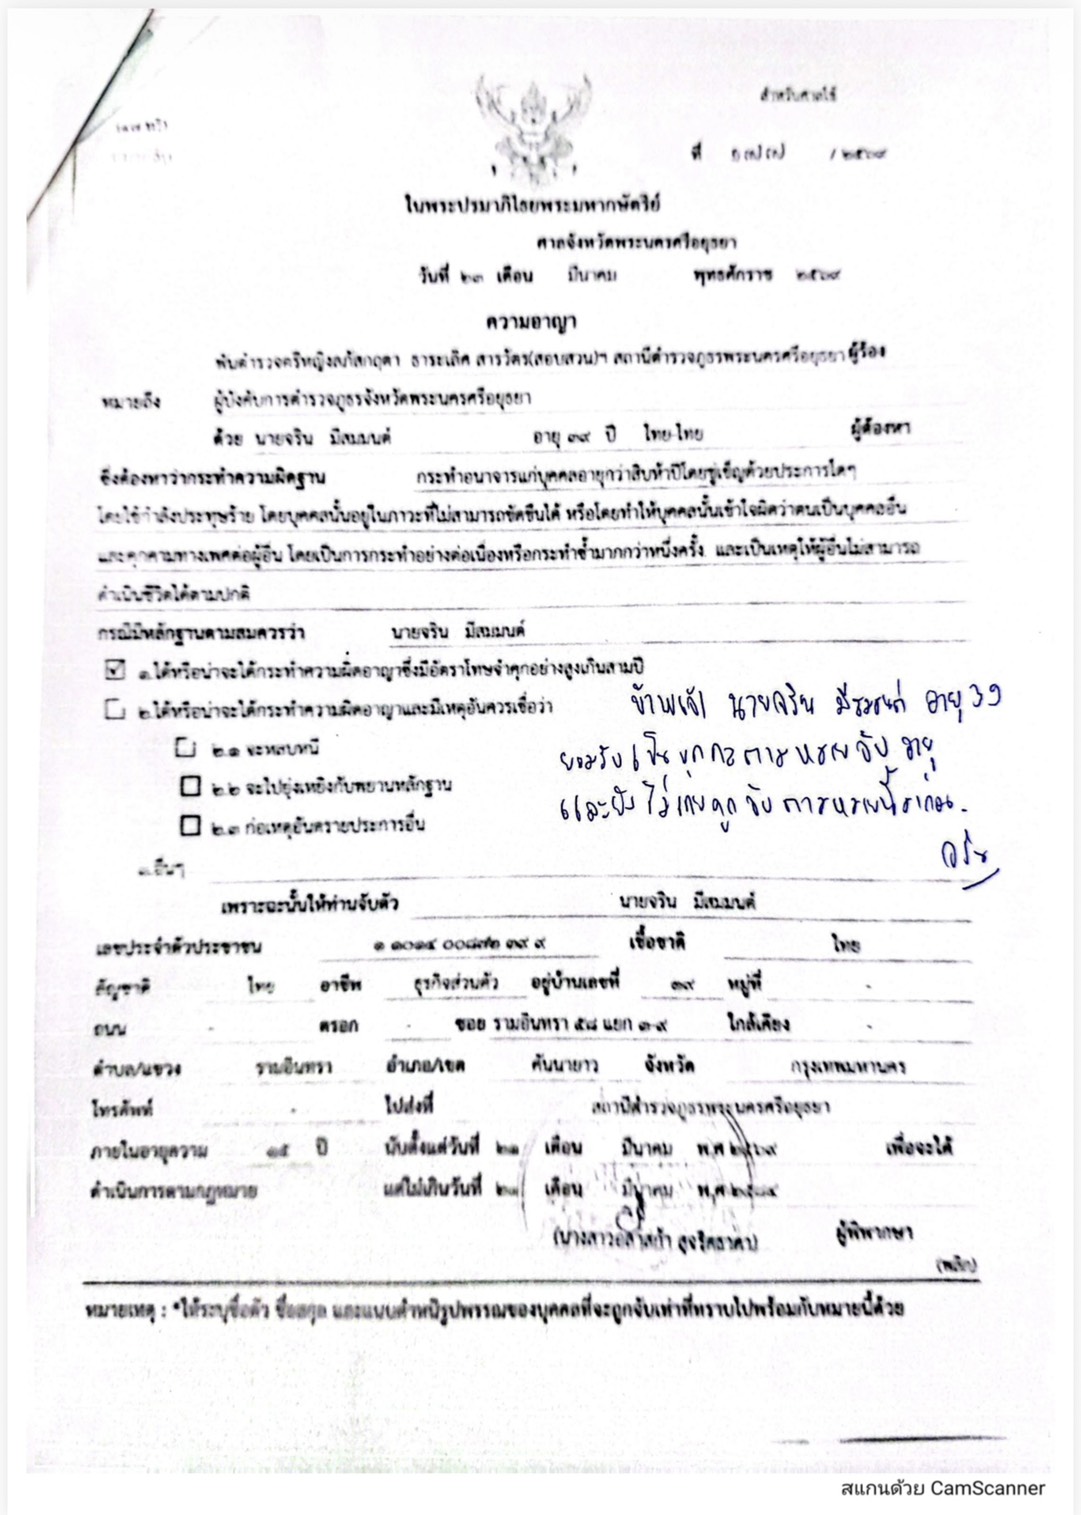 สำหรับศาลใช้
ที่ ๑๗๗ /๒๕๖๙
ในพระปรมาภิไธยพระมหากษัตริย์
ศาลจังหวัดพระนครศรีอยุธยา
วันที่ ๒๓ เดือน มีนาคม พุทธศักราช ๒๕๖๙
ความอาญา
พันตำรวจตรีหญิง ธาระเลิศ สารวัตร(สอบสวน)ฯ สถานีตำรวจภูธรพระนครศรีอยุธยา ผู้ร้อง
หมายถึง ผู้บังคับการตำรวจภูธรจังหวัดพระนครศรีอยุธยา
ด้วย นายจริน มีสมมนต์ อายุ ๓๙ ปี ไทย-ไทย ผู้ต้องหา
ซึ่งต้องหาว่ากระทำความผิดฐาน กระทำอนาจารแก่บุคคลอายุกว่าสิบห้าปีโดยขู่เข็ญด้วยประการใดๆ
โดยใช้กำลังประทุษร้าย โดยบุคคลนั้นอยู่ในภาวะที่ไม่สามารถขัดขืนได้ หรือโดยทำให้บุคคลนั้นเข้าใจผิดว่าตนเป็นบุคคลอื่น
และคุกคามทางเพศต่อผู้อื่น โดยเป็นการกระทำอย่างต่อเนื่องหรือกระทำซ้ำมากกว่าหนึ่งครั้ง และเป็นเหตุให้ผู้อื่นไม่สามารถ
ดำเนินชีวิตได้ตามปกติ
กรณีมีหลักฐานตามสมควรว่า นายจริน มีสมมนต์
๑.ได้หรือน่าจะได้กระทำความผิดอาญาซึ่งมีอัตราโทษจำคุกอย่างสูงเกินสามปี
๒.ได้หรือน่าจะได้กระทำความผิดอาญาและมีเหตุอันควรเชื่อว่า
ข้าพเจ้า นายจริน มีสมมนต์ อายุ 39
๒.๑ จะหลบหนี
ยอมรับเป็นบุคคลตามหมายจับ
๒.๒ จะไปยุ่งเหยิงกับพยานหลักฐาน
และยังไม่เคยถูกจับตามหมายนี้มาก่อน
๒.๓ ก่อเหตุอันตรายประการอื่น
จริน
๓.อื่นๆ
เพราะฉะนั้นให้ท่านจับตัว นายจริน มีสมมนต์
เลขประจำตัวประชาชน เชื้อชาติ ไทย
สัญชาติ ไทย อาชีพ ธุรกิจส่วนตัว อยู่บ้านเลขที่ ๓๙ หมู่ที่ -
ถนน - ตรอก - ซอย รามอินทรา ๕๘ แยก ๓-๙ ใกล้เคียง -
ตำบล/แขวง รามอินทรา อำเภอ/เขต คันนายาว จังหวัด กรุงเทพมหานคร
โทรศัพท์ - ไปส่งที่ สถานีตำรวจภูธรพระนครศรีอยุธยา
ภายในอายุความ ๑๕ ปี นับตั้งแต่วันที่ ๒๑ เดือน มีนาคม พ.ศ ๒๕๖๙ เพื่อจะได้
ดำเนินการตามกฎหมาย แต่ไม่เกินวันที่ ๒๑ เดือน มีนาคม พ.ศ ๒๕๘๔
ผู้พิพากษา
(พลิก)
หมายเหตุ : *ให้ระบุชื่อตัว ชื่อสกุล และแนบตำหนิรูปพรรณของบุคคลที่จะถูกจับเท่าที่ทราบไปพร้อมกับหมายนี้ด้วย
สแกนด้วย CamScanner